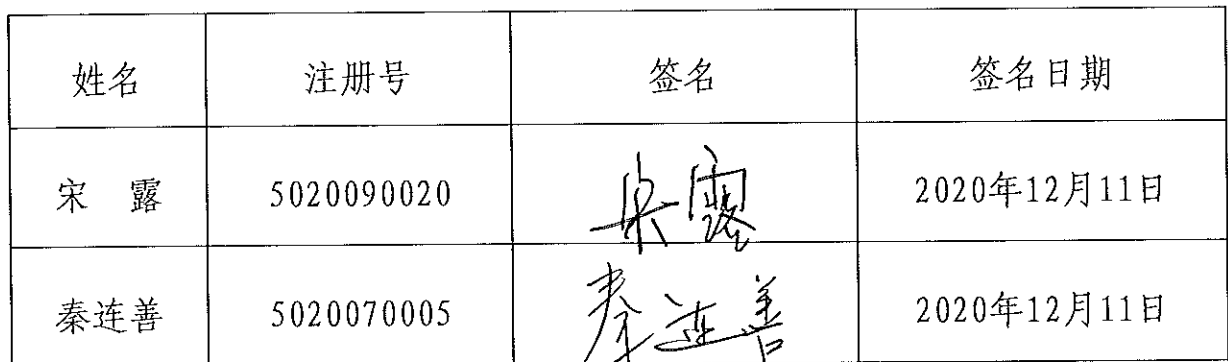 姓名 注册号 签名 签名日期
宋 露 5020090020 宋露 2020年12月11日
秦连善 5020070005 秦连善 2020年12月11日